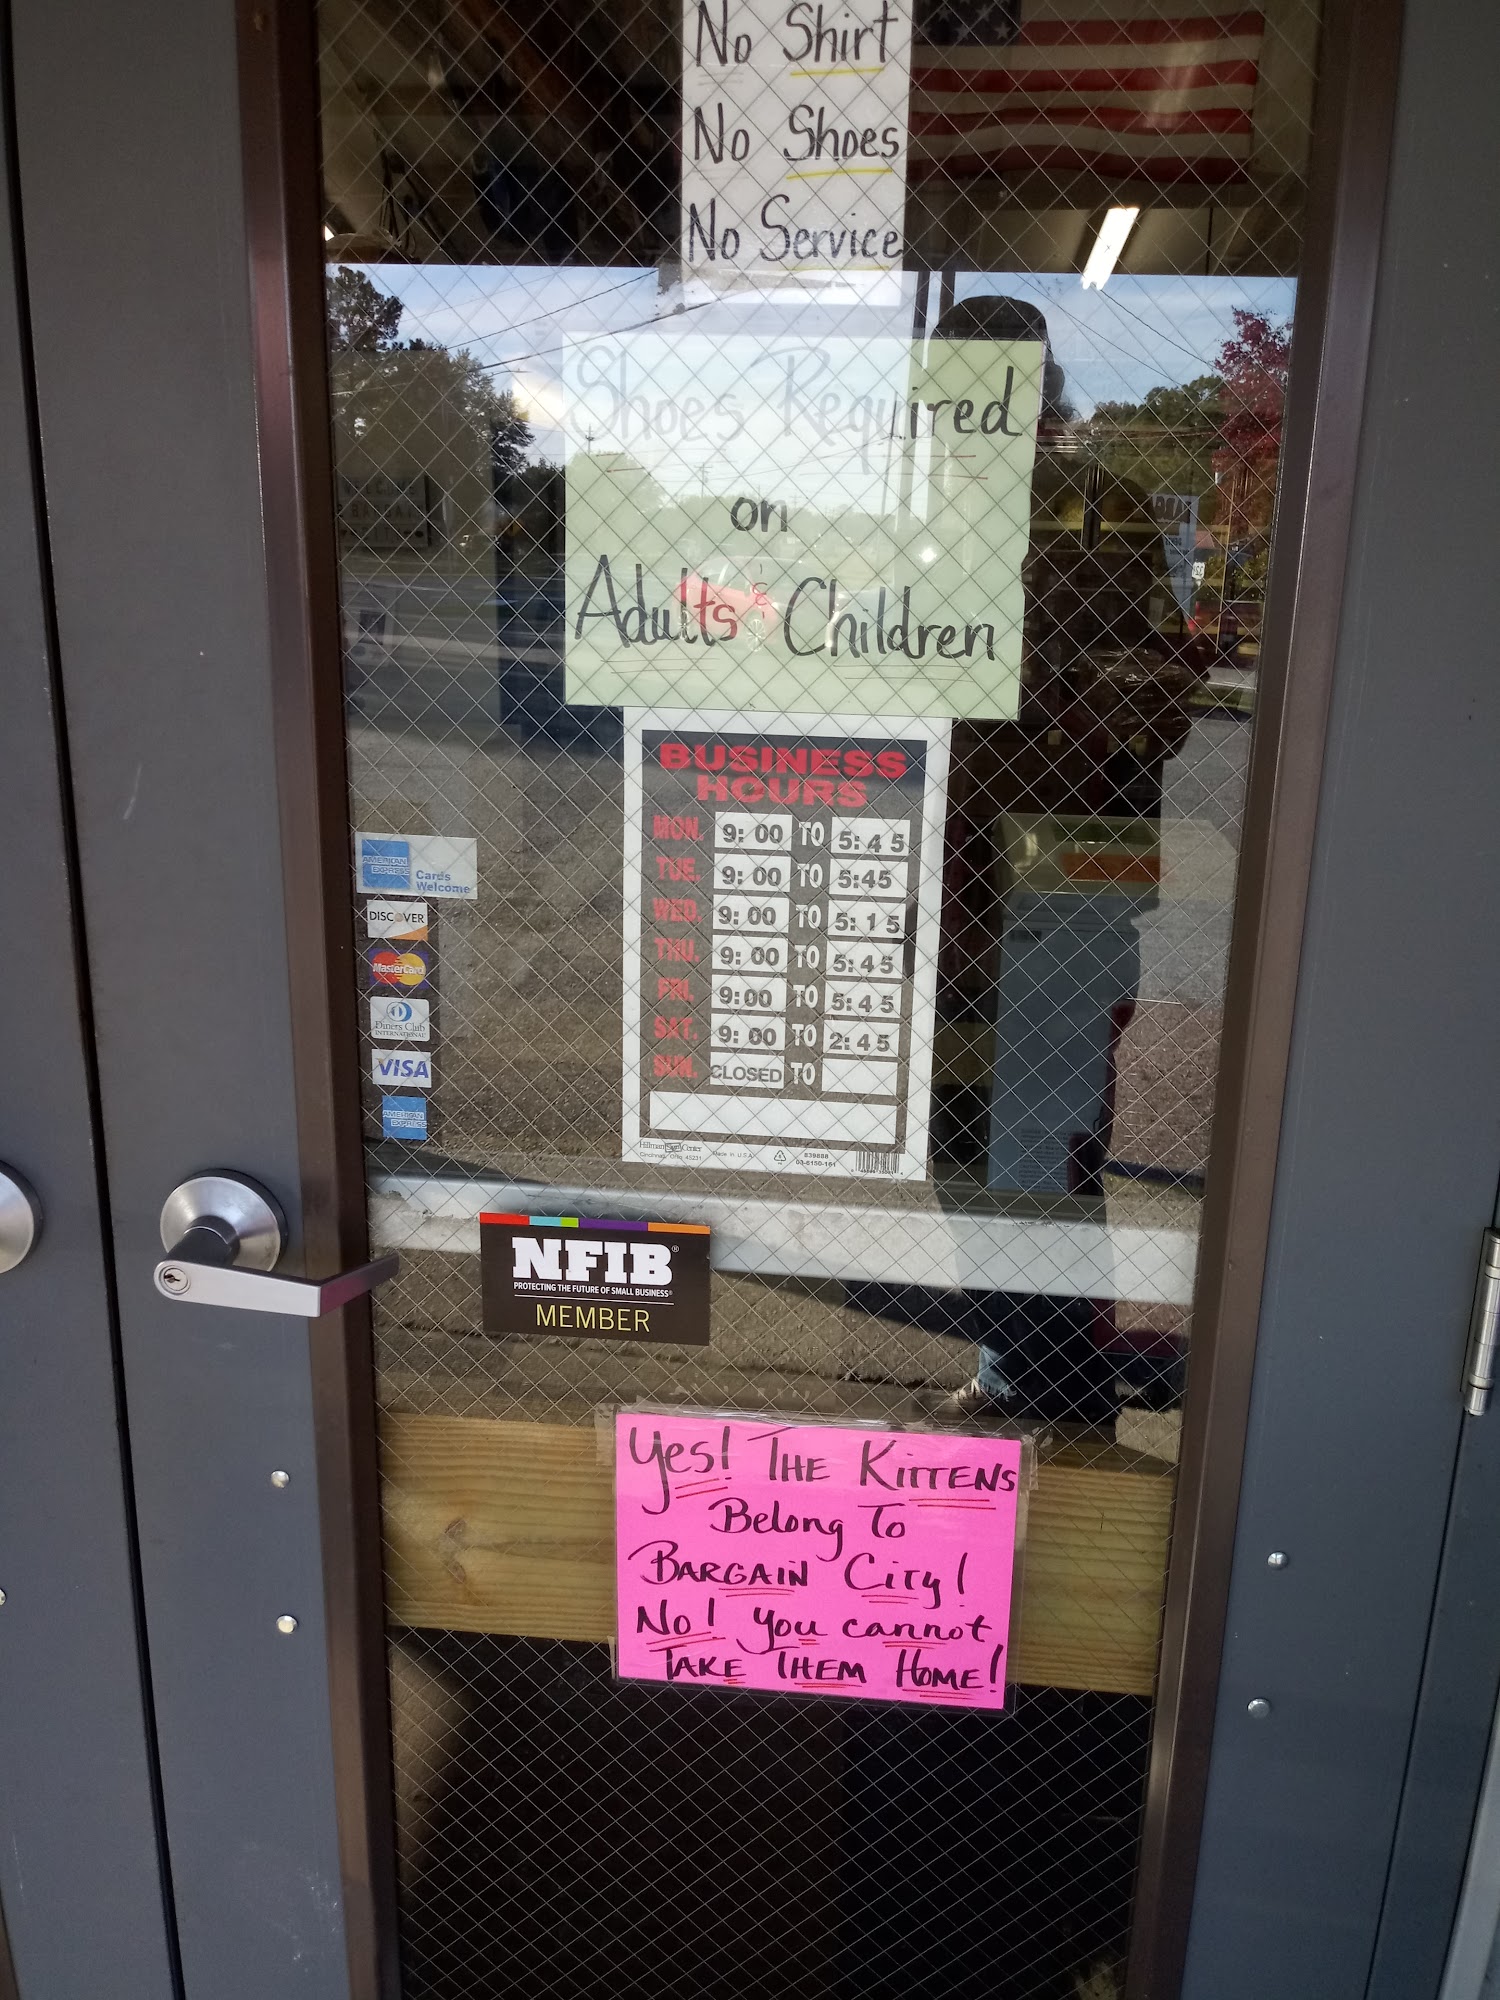 No Shirt
No Shoes
No Service
Shoes Required
on
Adults & Children
BUSINESS
HOURS
MON. 9:00 TO 5:45
TUE. 9:00 TO 5:45
WED. 9:00 TO 5:15
THU. 9:00 TO 5:45
FRI. 9:00 TO 5:45
SAT. 9:00 TO 2:45
SUN. CLOSED TO
Hillman Sign Center
Cincinnati, Ohio 45231 Made in U.S.A. 839888
03-6150-161
AMERICAN
EXPRESS
Cards
Welcome
DISCOVER
MasterCard
Diners Club
INTERNATIONAL
VISA
AMERICAN
EXPRESS
NFIB®
PROTECTING THE FUTURE OF SMALL BUSINESS®
MEMBER
Yes! THE KITTENS
Belong To
BARGAIN City!
No! you cannot
TAKE THEM HOME!